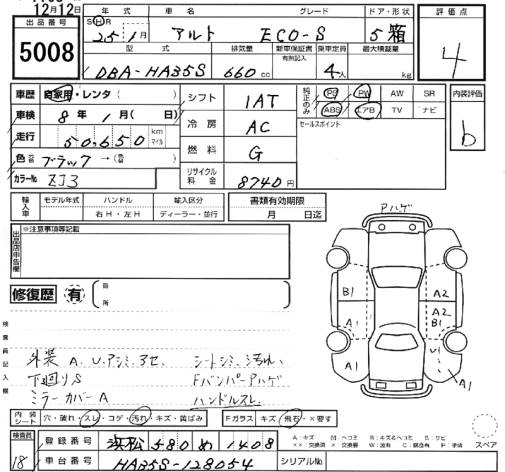 12月12日
出品番号
5008
年式 車名 グレード ドア・形状
SHR 25年1月 アルト ECO-S 5 箱
型式 排気量 新車保証書 有無記入 乗車定員 最大積載量
DBA-HA35S 660cc 4人 kg
評価点
4
車歴 自家用・レンタ( )
車検 8年 1月( 日)
走行 50,650 km マイル
色 ブラック→(色 )
カラーNo ZJ3
シフト 1AT
冷房 AC
燃料 G
リサイクル料金 8740円
純正のみ PS PW AW SR
ABS エアB TV ナビ
セールスポイント
内装評価
b
輸入車 モデル年式 ハンドル 輸入区分
右H・左H ディーラー・並行
書類有効期限
月 日迄
出品店申告欄 ※注意事項等記載
修復歴 有 箇所
検査員記入欄
外装 A.U.アシミ.アセ. シートシミ.汚れ.
下廻りS Fバンパーアハゲ
ミラーカバーA ハンドルスレ
アハゲ
B1 A2
A2
A1 B1
U1
A1
内装シート 穴・破れ・スレ・コゲ・汚れ・キズ・黄ばみ Fガラス キズ・飛石・×要す
検査員
18
登録番号 浜松 580 め 1408
車台番号 HA35S-128054 シリアルNo
A:キズ U:ヘコミ B:キズ&ヘコミ S:サビ
××:交換済 W:波有 C:腐食有 P:要塗装
スペア